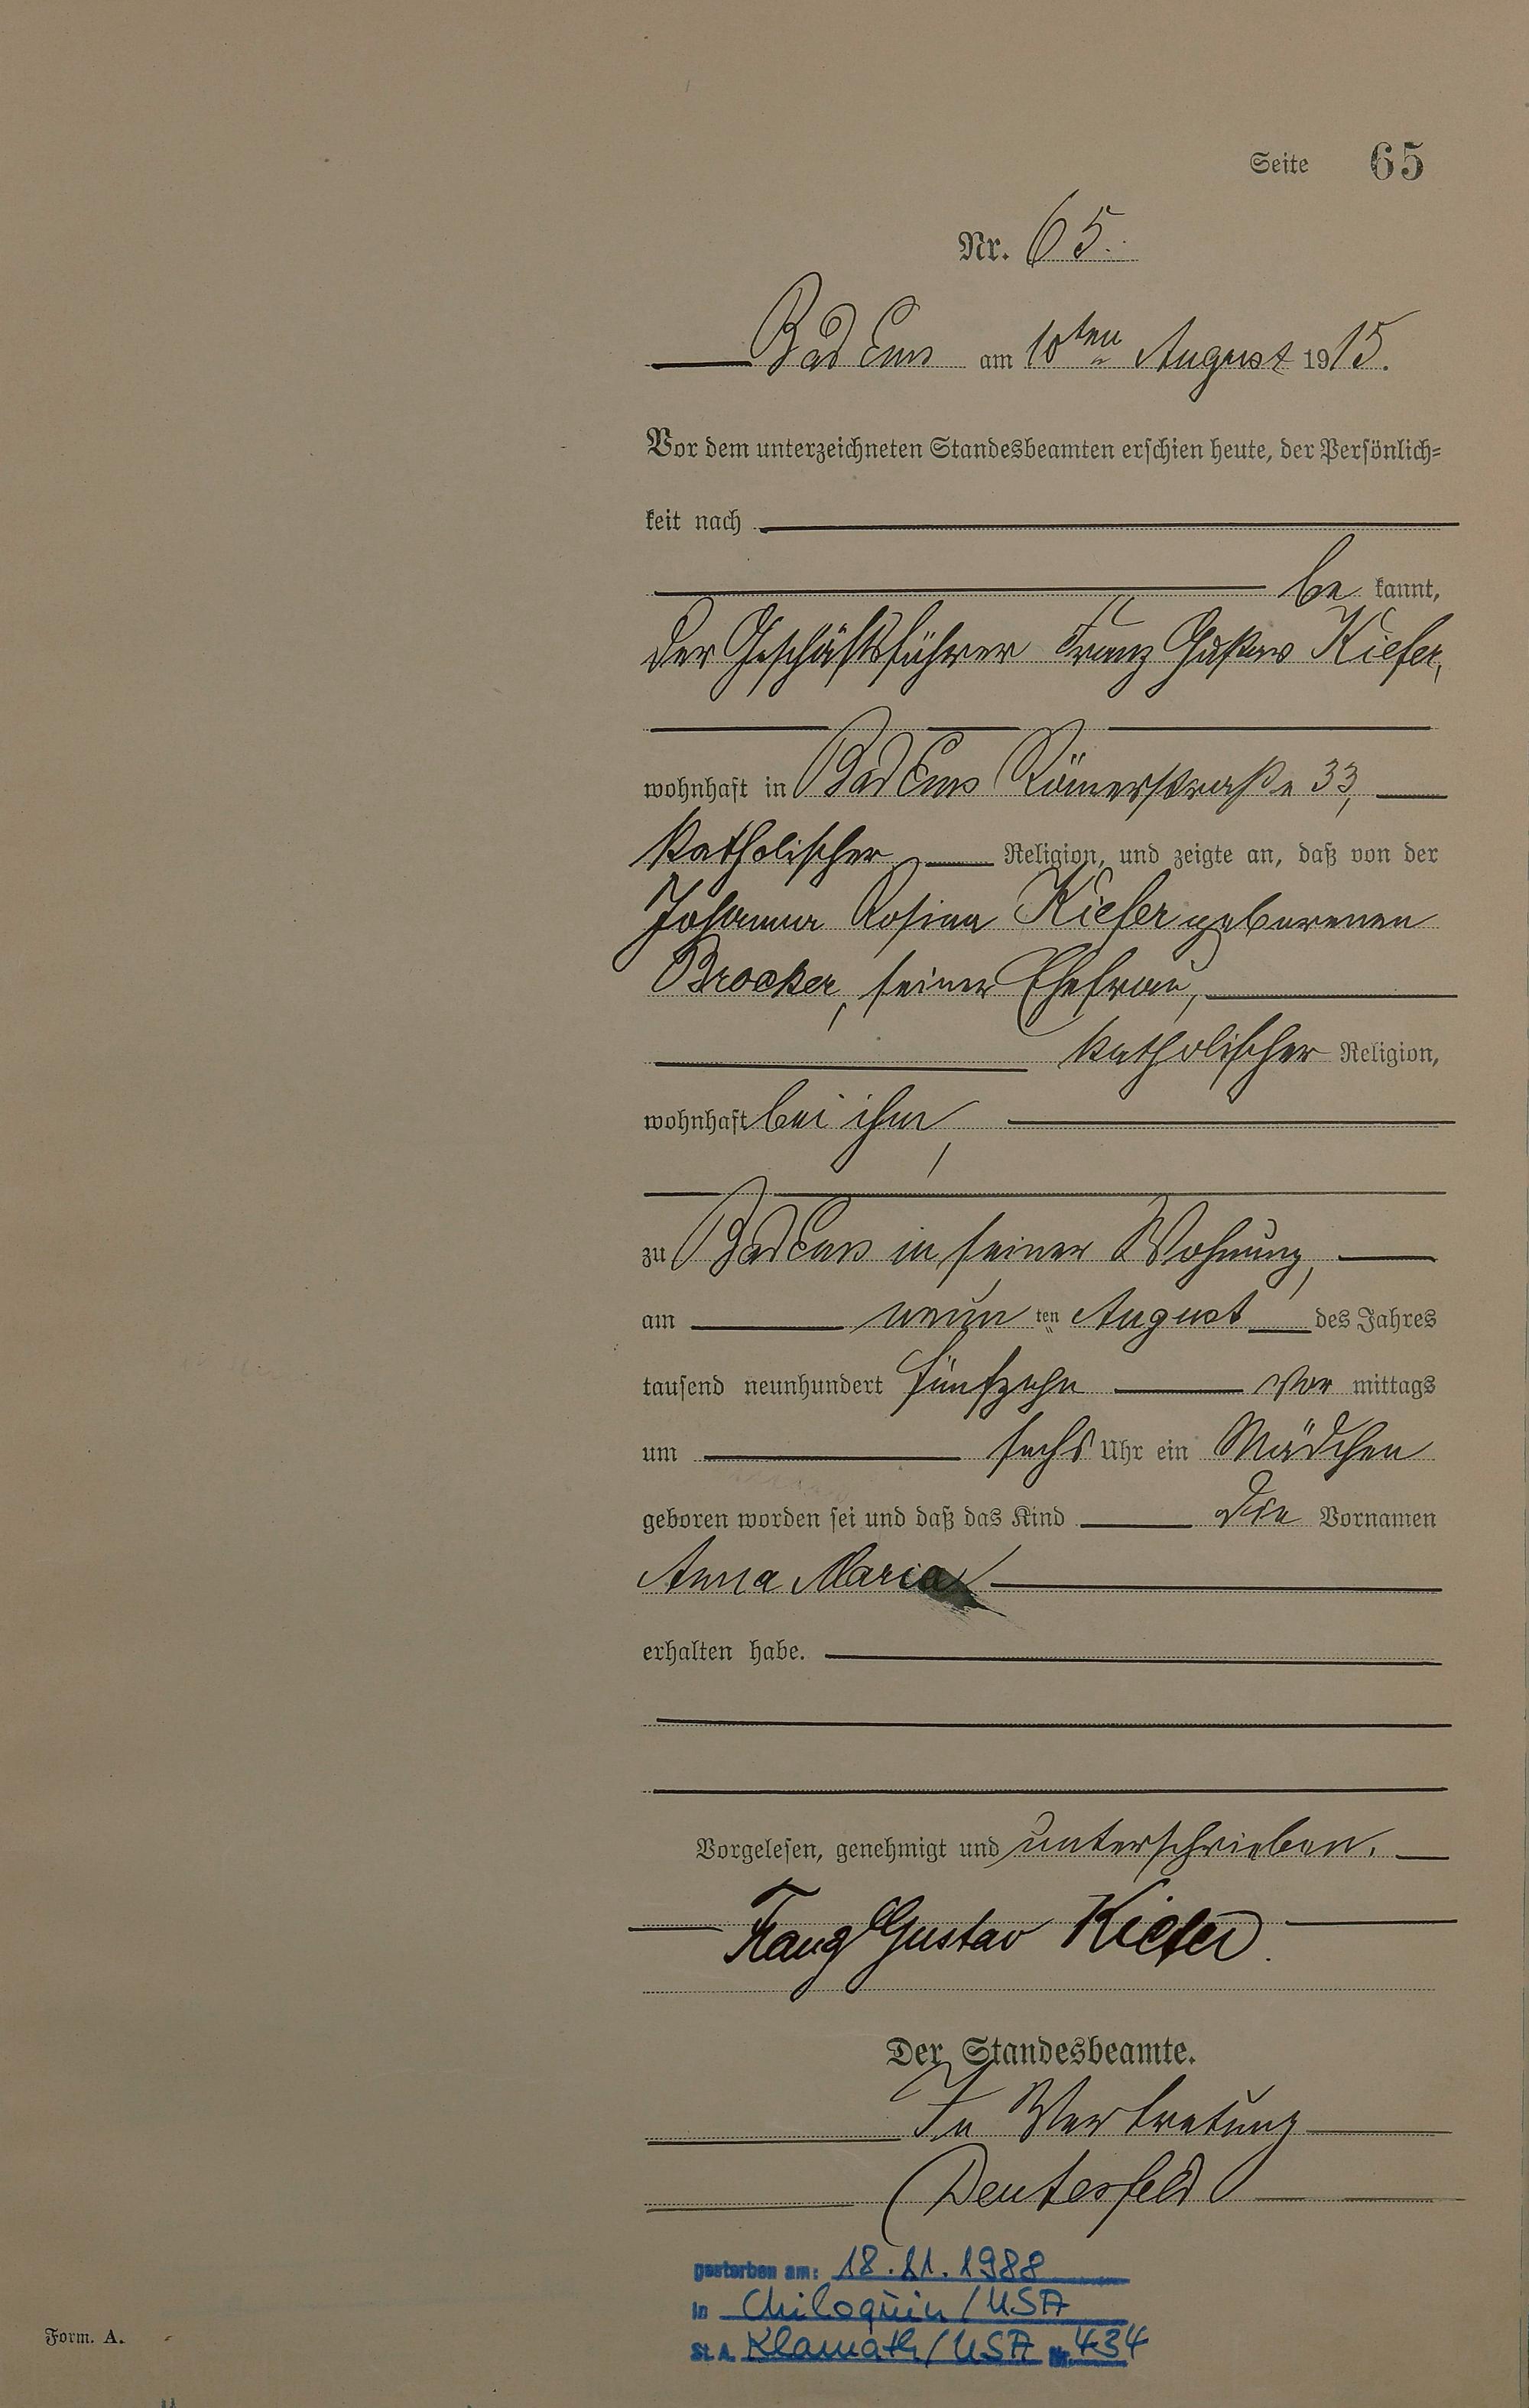 Seite 65
Nr. 65.
Bad Ems am 10ten August 1915.
Vor dem unterzeichneten Standesbeamten erschien heute, der Persönlich-
keit nach
be kannt,
der Geschäftsführer Franz Gustav Kiefer,
wohnhaft in Bad Ems Römerstraße 33,
katholischer Religion, und zeigte an, daß von der
Johanna Rosina Kiefer geborenen
Brocker, seiner Ehefrau,
katholischer Religion,
wohnhaft bei ihm,
zu Bad Ems in seiner Wohnung,
am neun ten August des Jahres
tausend neunhundert fünfzehn vor mittags
um sechs Uhr ein Mädchen
geboren worden sei und daß das Kind die Vornamen
Anna Maria
erhalten habe.
Vorgelesen, genehmigt und unterschrieben.
Franz Gustav Kiefer.
Der Standesbeamte.
In Vertretung
Deutesfeld
gestorben am: 18.11.1988
in Chiloquin/USA
St.A. Klamath/USA Nr. 434
Form. A.